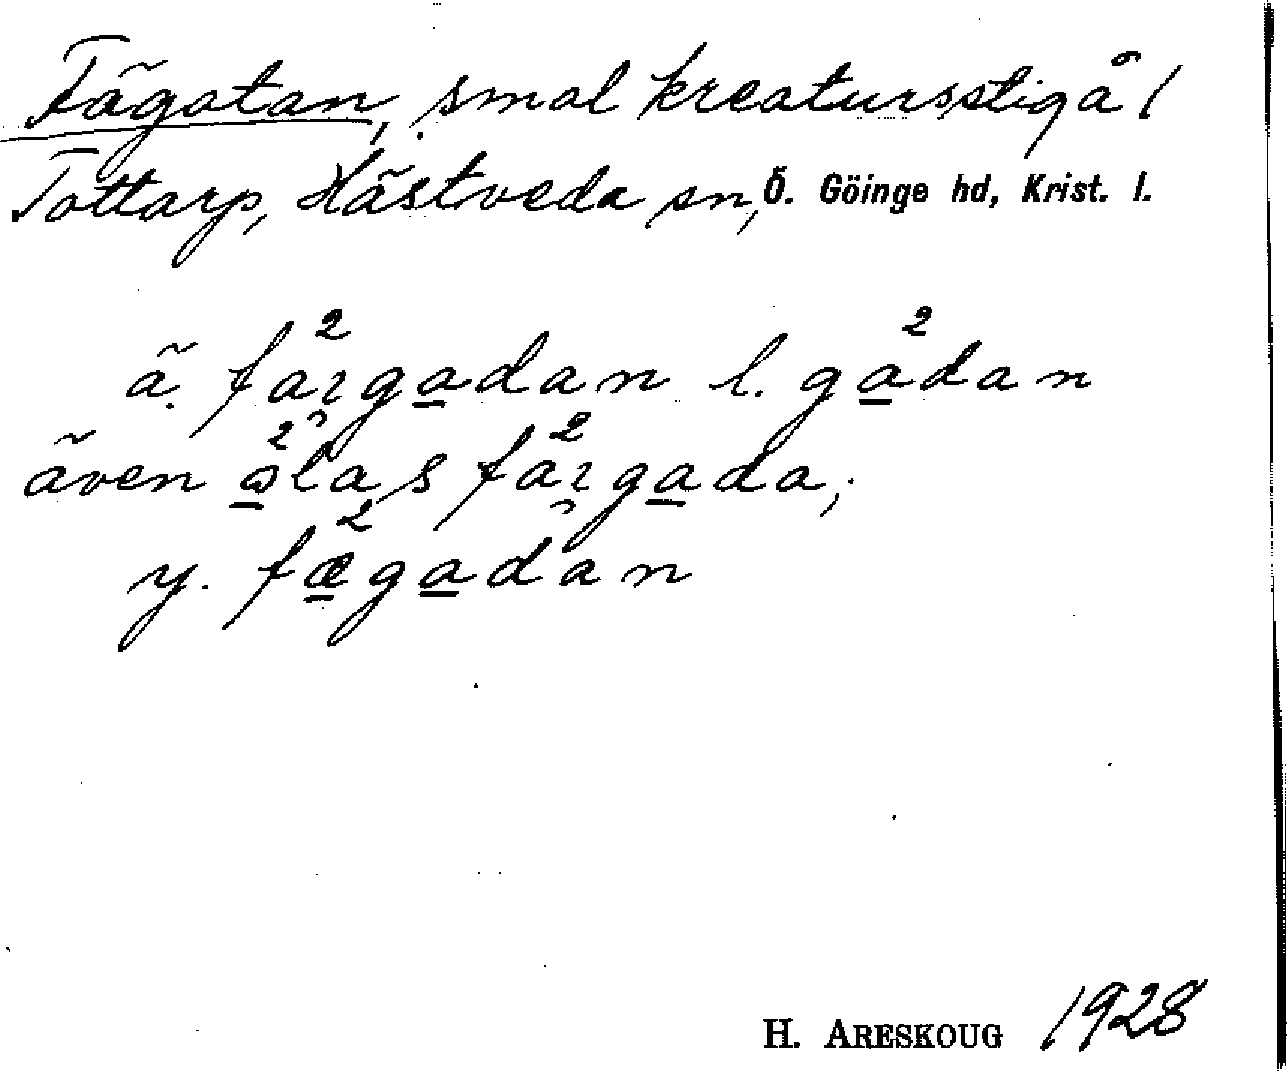 Fägatan, smal kreatursstig å /
Tottarp, Hästveda sn, Ö. Göinge hd, Krist. l.
ä. fa²rgadan l. ga²dan
även ɷ²las fa²rgada,
y. fæ²gadan
H. ARESKOUG 1928